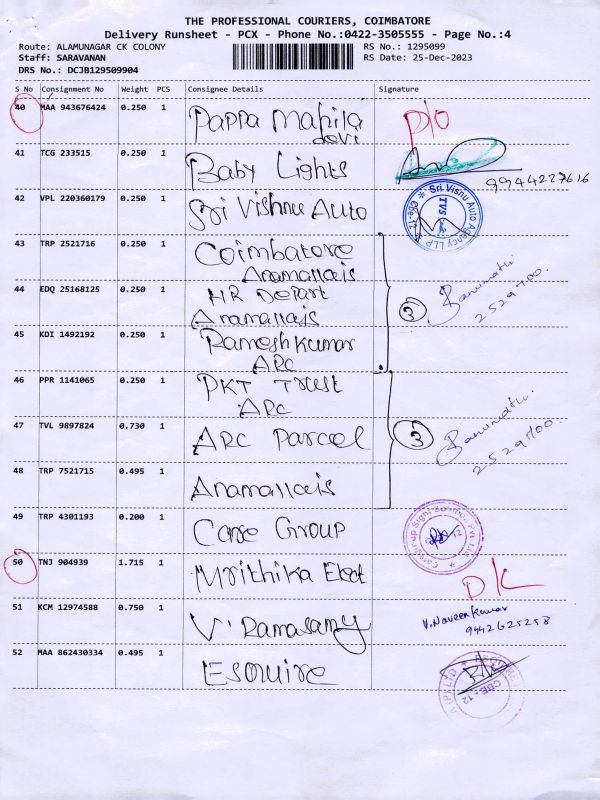 THE PROFESSIONAL COURIERS, COIMBATORE
Delivery Runsheet - PCX - Phone No.:0422-3505555 - Page No.:4
Route: ALAMUNAGAR CK COLONY
RS No.: 1295099
Staff: SARAVANAN
RS Date: 25-Dec-2023
DRS No.: DCJB129509904
S No Consignment No Weight PCS Consignee Details Signature
40 MAA 943676424 0.250 1 Pappa Mahila devi D/O
41 TCG 233515 0.250 1 Baby Lights
9944227616
42 VPL 220360179 0.250 1 Sri Vishnu Auto
Sri Visnu Auto Agency LLP Cbe-12 TVS
43 TRP 2521716 0.250 1 Coimbatore
Anamallais
44 EDQ 25168125 0.250 1 HR Depart
Anamallais
3 Banumathi
2529400.
45 KDI 1492192 0.250 1 Rameshkumar
ARC
46 PPR 1141065 0.250 1 PKT Trust
ARC
47 TVL 9897824 0.730 1 ARC Parcel
3 Banumathi
2529400.
48 TRP 7521715 0.495 1 Anamallais
49 TRP 4301193 0.200 1 Care Group
Caregroup Sight Solution Pvt. Ltd.
50 TNJ 904939 1.715 1 Mrithika Elect D/L
51 KCM 12974588 0.750 1 V. Ramasamy
V.Naveenkumar
9442625258
52 MAA 862430334 0.495 1 Esquire
CBE-12